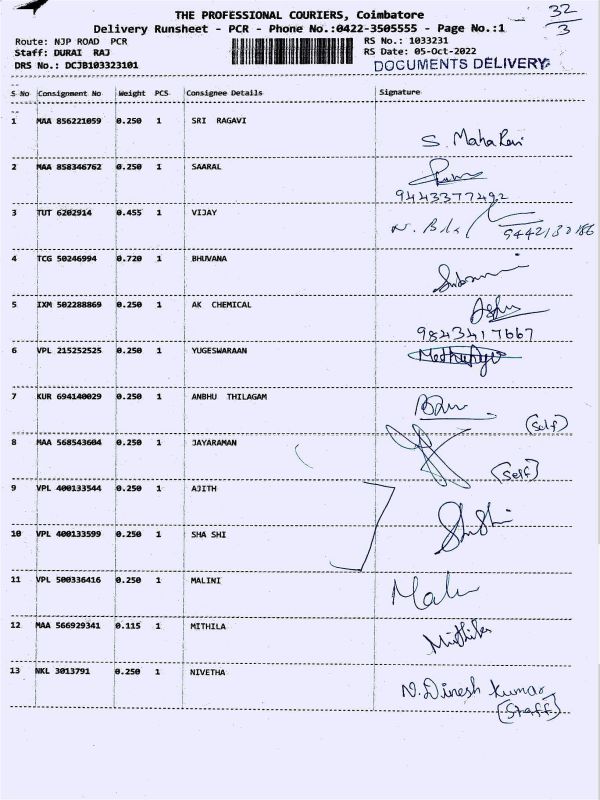 THE PROFESSIONAL COURIERS, Coimbatore
32/3
Delivery Runsheet - PCR - Phone No.:0422-3505555 - Page No.:1
Route: NJP ROAD PCR
RS No.: 1033231
Staff: DURAI RAJ
RS Date: 05-Oct-2022
DRS No.: DCJB103323101
DOCUMENTS DELIVERY
S No Consignment No Weight PCS Consignee Details Signature
1 MAA 856221059 0.250 1 SRI RAGAVI
S. Maha Rani
2 MAA 858346762 0.250 1 SAARAL
9443377492
3 TUT 6202914 0.455 1 VIJAY
9442130186
4 TCG 50246994 0.720 1 BHUVANA
5 IXM 502288869 0.250 1 AK CHEMICAL
9843417667
6 VPL 215252525 0.250 1 YUGESWARAAN
7 KUR 694140029 0.250 1 ANBHU THILAGAM
(Self)
8 MAA 568543604 0.250 1 JAYARAMAN
(Self)
9 VPL 400133544 0.250 1 AJITH
10 VPL 400133599 0.250 1 SHA SHI
ShaShi
11 VPL 500336416 0.250 1 MALINI
12 MAA 566929341 0.115 1 MITHILA
Mithila
13 NKL 3013791 0.250 1 NIVETHA
N. Dinesh kumar
(Staff)